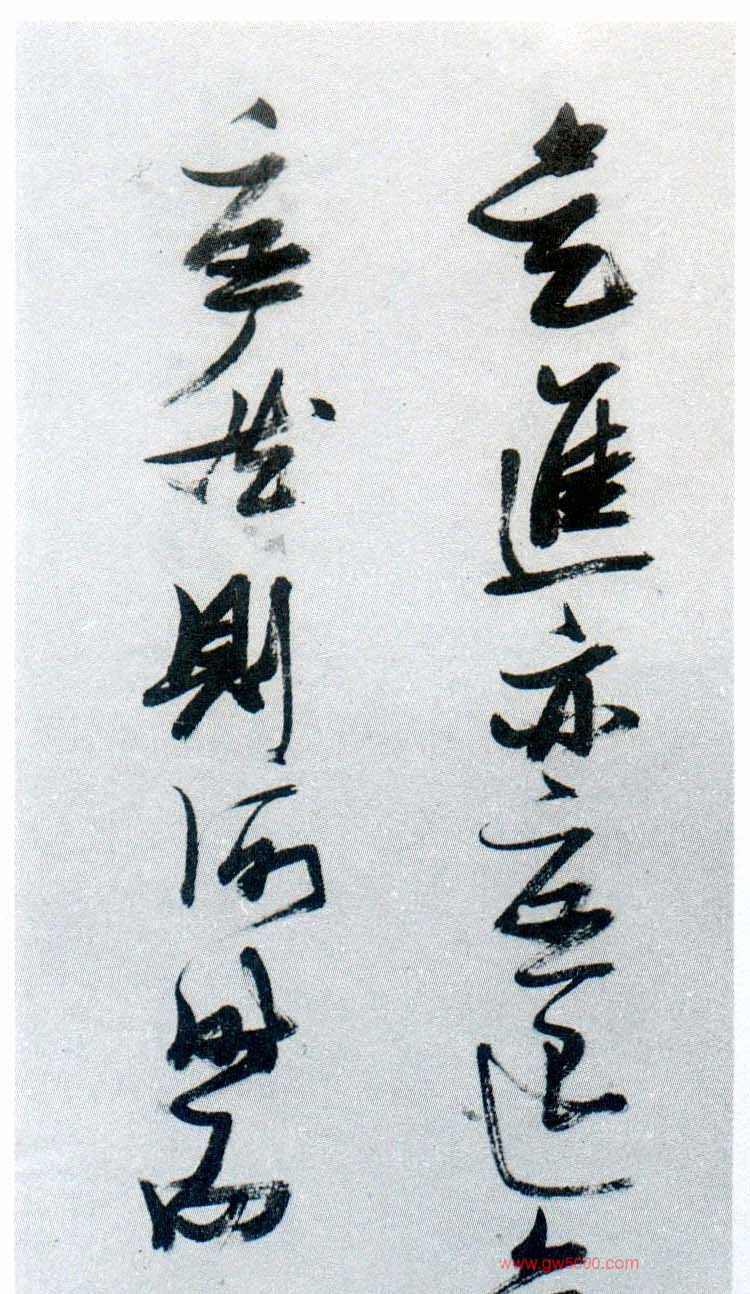 是進亦憂退
憂然則何時而
www.gw5000.com